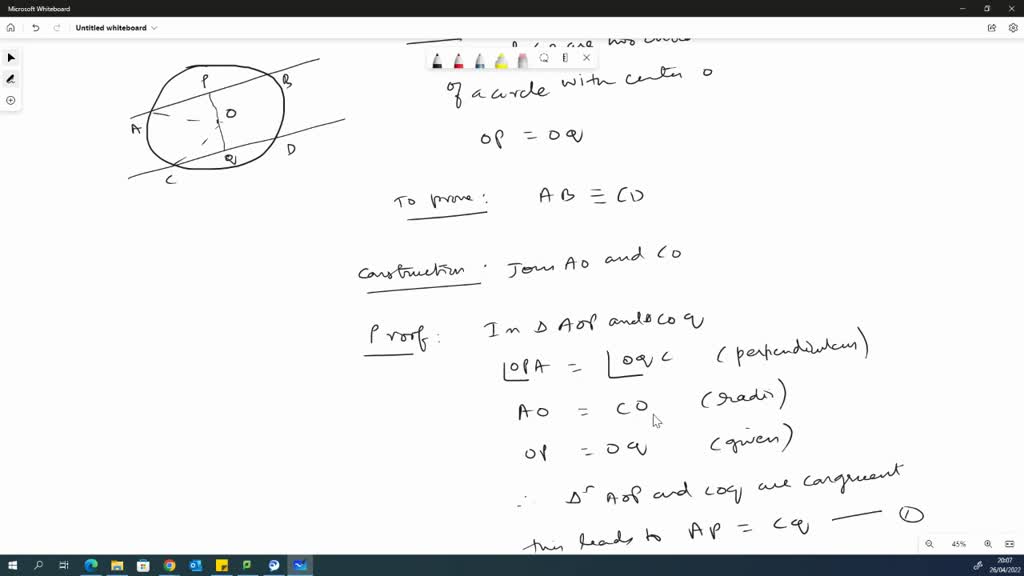 Microsoft Whiteboard
Untitled whiteboard
are two
of a circle with center O
OP = OQ
To prove: AB ≡ CD
Construction: Join AO and CO
Proof: In Δ AOP and Δ COQ
∠OPA = ∠OQC (perpendiculars)
AO = CO (radii)
OP = OQ (given)
∴ Δs AOP and COQ are congruent
this leads to AP = CQ — ①
P
B
O
A
Q
D
C
45%
20:07
26/04/2022